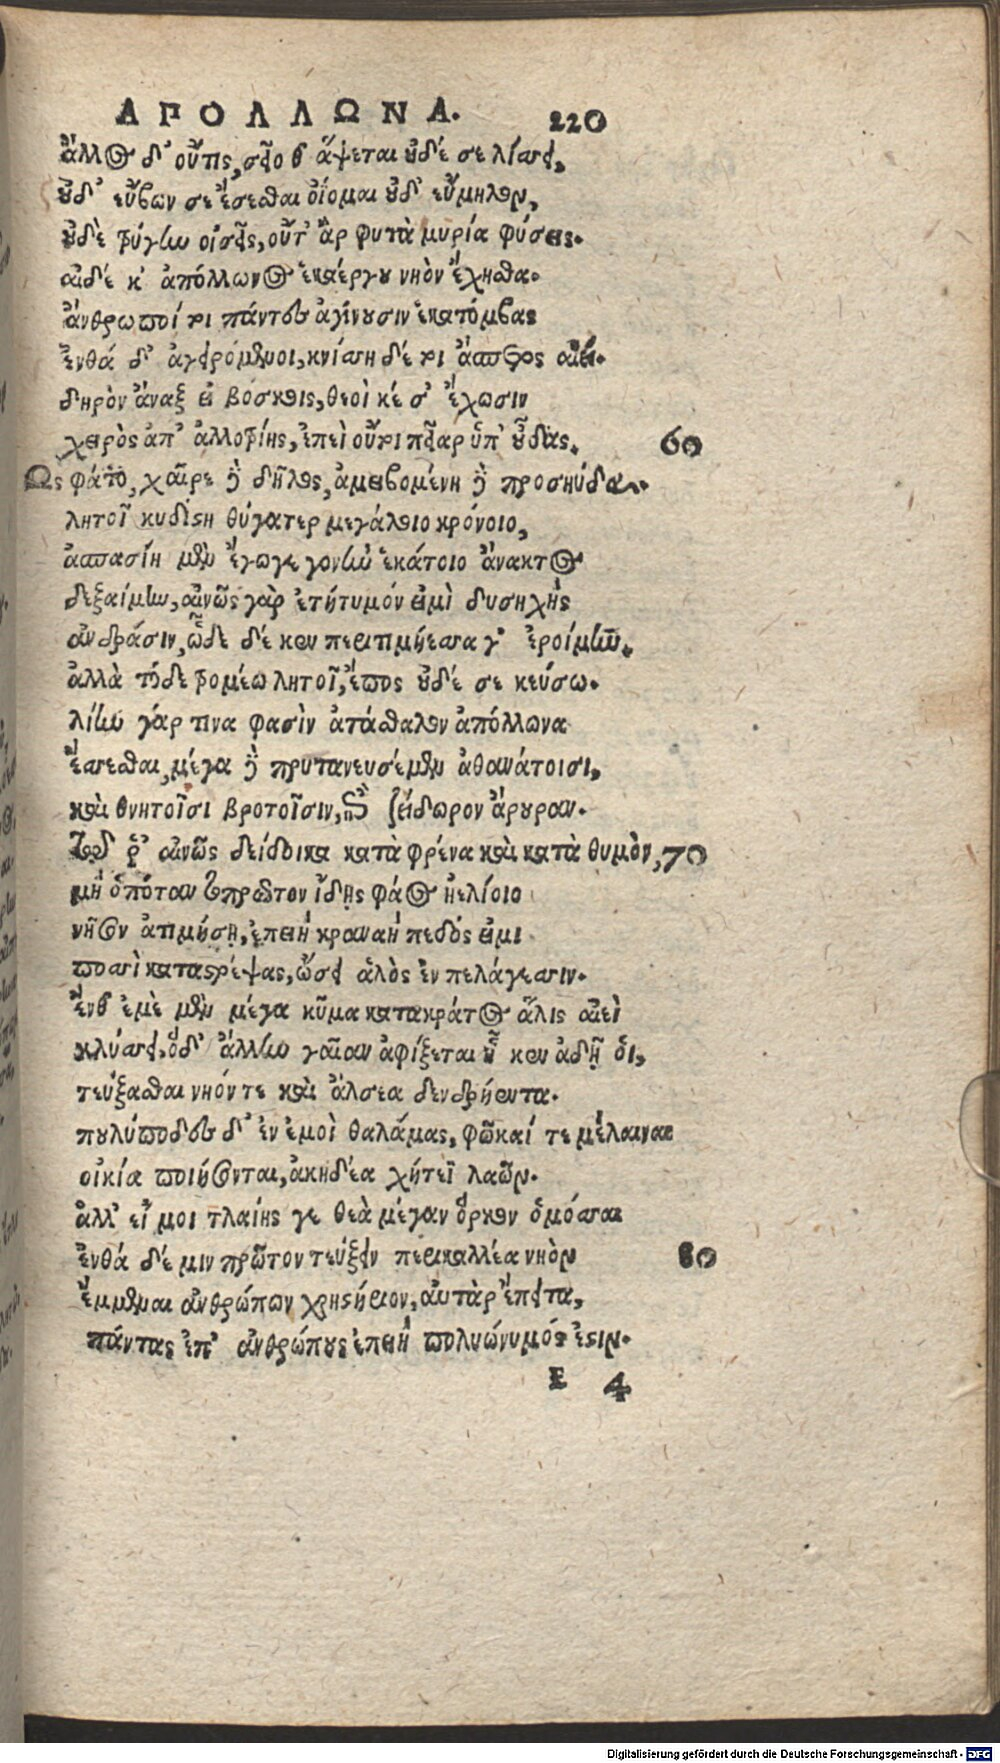 ΑΠΟΛΛΩΝΑ. 220
ἄλλος δ' οὔτις, σεῖο θ' ἅψεται οὐδέ σε λίσσει,
οὐδ' εὔβων σε ἔσεσθαι ὀΐομαι οὐδ' εὔμηλον,
οὐδὲ τρύγην οἴσεις, οὔτ' ἂρ φυτὰ μυρία φύσεις.
αἰδέ κ' ἀπόλλωνος ἑκαέργου νηὸν ἔχησθα.
ἄνθρωποί τοι πάντες ἀγίνουσιν ἑκατόμβας
ἔνθά δ' ἀγειρόμενοι, κνίσση δέ τοι ἄσπετος αἰεί.
δηρὸν ἄναξ εἰ βόσκεις, θεοὶ κέ σ' ἔχωσιν
χειρὸς ἀπ' ἀλλοτρίης, ἐπεὶ οὔτοι πεῖαρ ὑπ' οὖδας. 60
Ως φάτο, χαῖρε δὲ δῆλος, ἀμειβομένη δὲ προσηύδα.
λητοῖ κυδίστη θύγατερ μεγάλειο κρόνοιο,
ἀσπασίη μὲν ἔγωγε γονὴν ἑκάτοιο ἄνακτος
δεξαίμην, αἰνῶς γὰρ ἐτήτυμόν εἰμὶ δυσηχὴς
ἀνδράσιν, ὧδε δέ κεν περιτιμήεσσα γ' ἐροίμην.
ἀλλὰ τόδε τρομέω λητοῖ, ἔπος οὐδέ σε κεύσω.
λίην γάρ τινα φασὶν ἀτάσθαλον ἀπόλλωνα
ἔσσεσθαι, μέγα δὲ πρυτανευσέμεν ἀθανάτοισι,
καὶ θνητοῖσι βροτοῖσιν, ἐπὶ ζείδωρον ἄρουραν.
Τῷ ῥ' αἰνῶς δείδοικα κατὰ φρένα καὶ κατὰ θυμὸν, 70
μὴ ὁπόταν τὸ πρῶτον ἴδῃς φάος ἠελίοιο
νῆσον ἀτιμήσῃ, ἐπειὴ κραναὴ πεδός εἰμι
ποσσὶ καταστρέψας, ὤσει ἁλὸς ἐν πελάγεσσιν.
ἔνθ' ἐμὲ μὲν μέγα κῦμα κατακράτος ἅλις αἰεὶ
κλύσσει, ὅδ' ἄλλην γαῖαν ἀφίξεται ἥ κεν ἅδῃ οἱ,
τεύξασθαι νηόν τε καὶ ἄλσεα δενδρήεντα.
πουλύποδες δ' ἐν ἐμοὶ θαλάμας, φῶκαί τε μέλαιναι
οἰκία ποιήσονται, ἀκηδέα χήτεϊ λαῶν.
ἀλλ' εἴ μοι τλαίης γε θεὰ μέγαν ὅρκον ὁμόσσαι
ἐνθά δέ μιν πρῶτον τεύξειν περικαλλέα νηὸν 80
ἔμμεναι ἀνθρώπων χρηστήριον, αὐτὰρ ἔπειτα,
πάντας ἐπ' ἀνθρώπους ἐπειὴ πολυώνυμός ἐστιν.
E 4
Digitalisierung gefördert durch die Deutsche Forschungsgemeinschaft - DFG